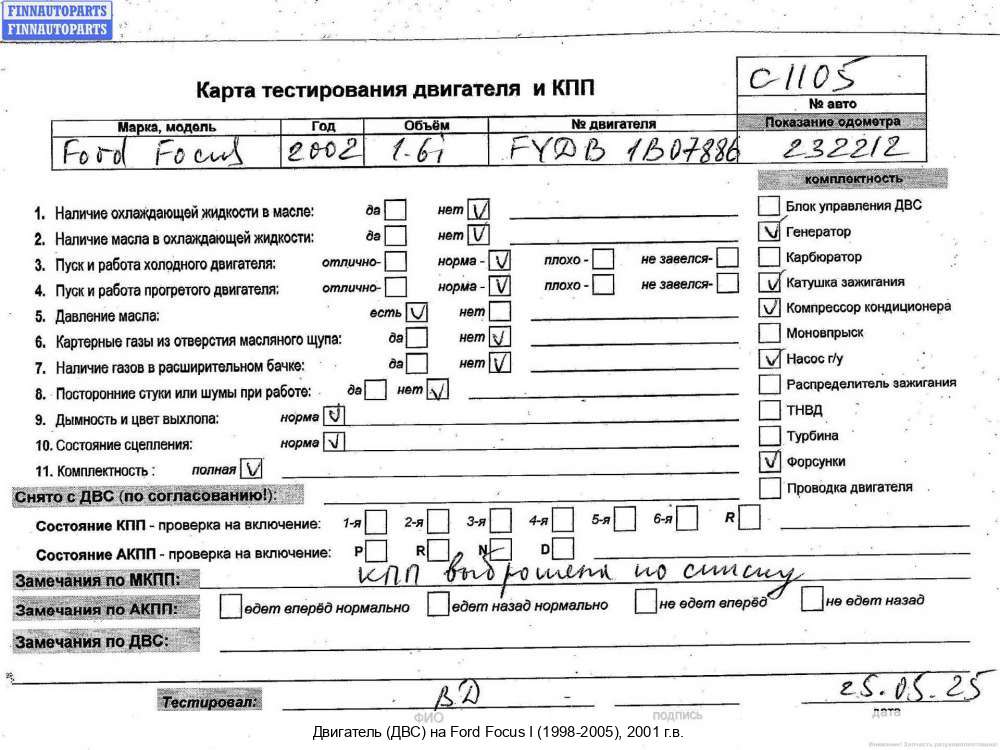 FINNAUTOPARTS
FINNAUTOPARTS
Карта тестирования двигателя и КПП
C1105
№ авто
Марка, модель Год Объём № двигателя Показание одометра
Ford Focus 2002 1.6i FYDB 1B07886 232212
комплектность
1. Наличие охлаждающей жидкости в масле: да нет V
2. Наличие масла в охлаждающей жидкости: да нет V
3. Пуск и работа холодного двигателя: отлично- норма - V плохо - не завелся-
4. Пуск и работа прогретого двигателя: отлично- норма - V плохо - не завелся-
5. Давление масла: есть V нет
6. Картерные газы из отверстия масляного щупа: да нет V
7. Наличие газов в расширительном бачке: да нет V
8. Посторонние стуки или шумы при работе: да нет V
9. Дымность и цвет выхлопа: норма V
10. Состояние сцепления: норма V
11. Комплектность : полная V
Блок управления ДВС
V Генератор
Карбюратор
V Катушка зажигания
V Компрессор кондиционера
Моновпрыск
V Насос г/у
Распределитель зажигания
ТНВД
Турбина
V Форсунки
Проводка двигателя
Снято с ДВС (по согласованию!):
Состояние КПП - проверка на включение: 1-я 2-я 3-я 4-я 5-я 6-я R
Состояние АКПП - проверка на включение: P R N D
Замечания по МКПП: КПП выброшена по списку
Замечания по АКПП: едет вперёд нормально едет назад нормально не едет вперёд не едет назад
Замечания по ДВС:
Тестировал: ВД 25.05.25
ФИО подпись дата
Двигатель (ДВС) на Ford Focus I (1998-2005), 2001 г.в.